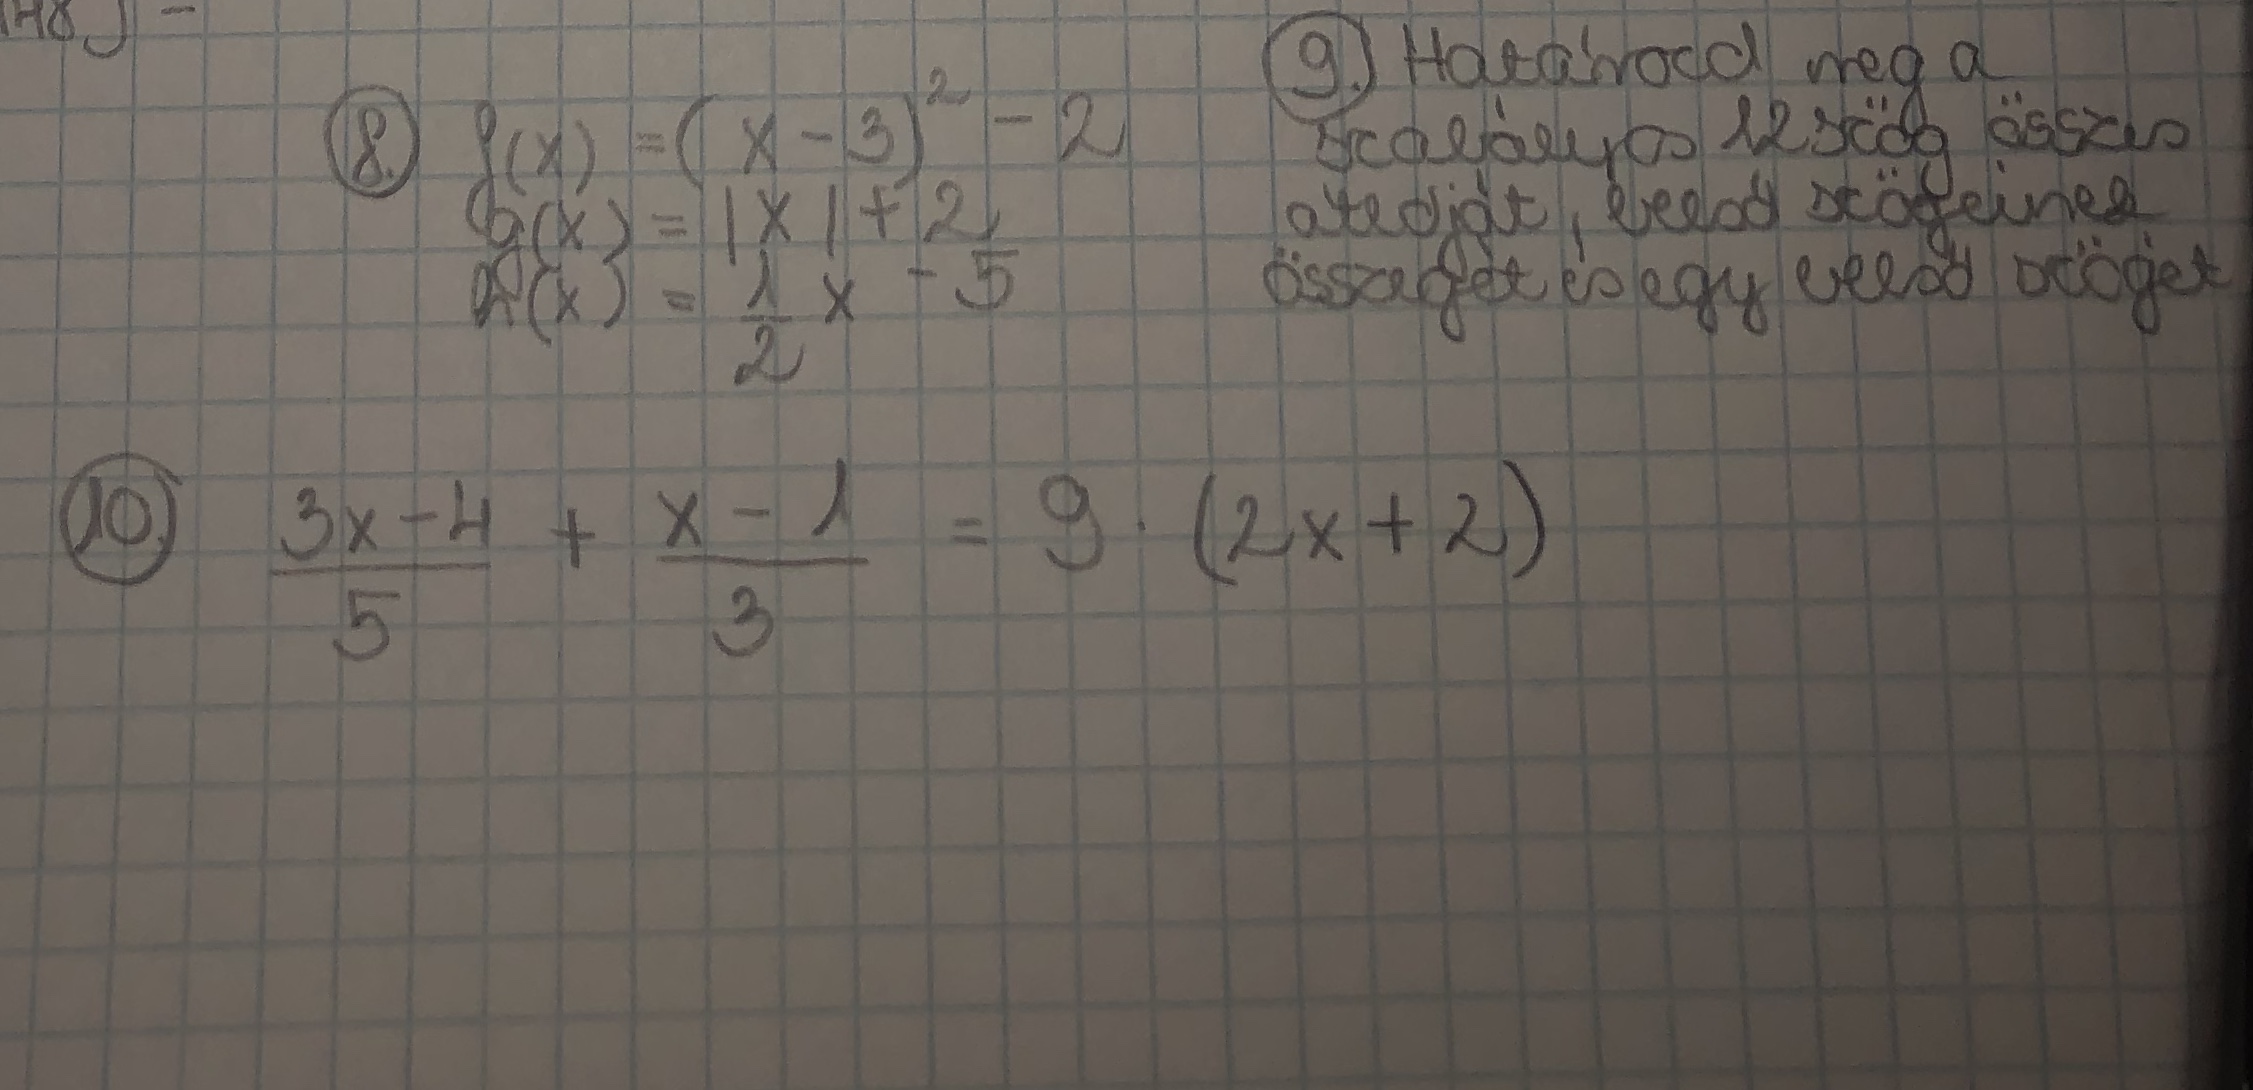 8. f(x) = (x - 3)² - 2
g(x) = |x| + 2
h(x) = 1/2 x - 5
9. Határozd meg a
szabályos 12 szög összes
átlóját, belső szögeinek
összegét és egy belső szögét
10. (3x - 4)/5 + (x - 1)/3 = 9 · (2x + 2)